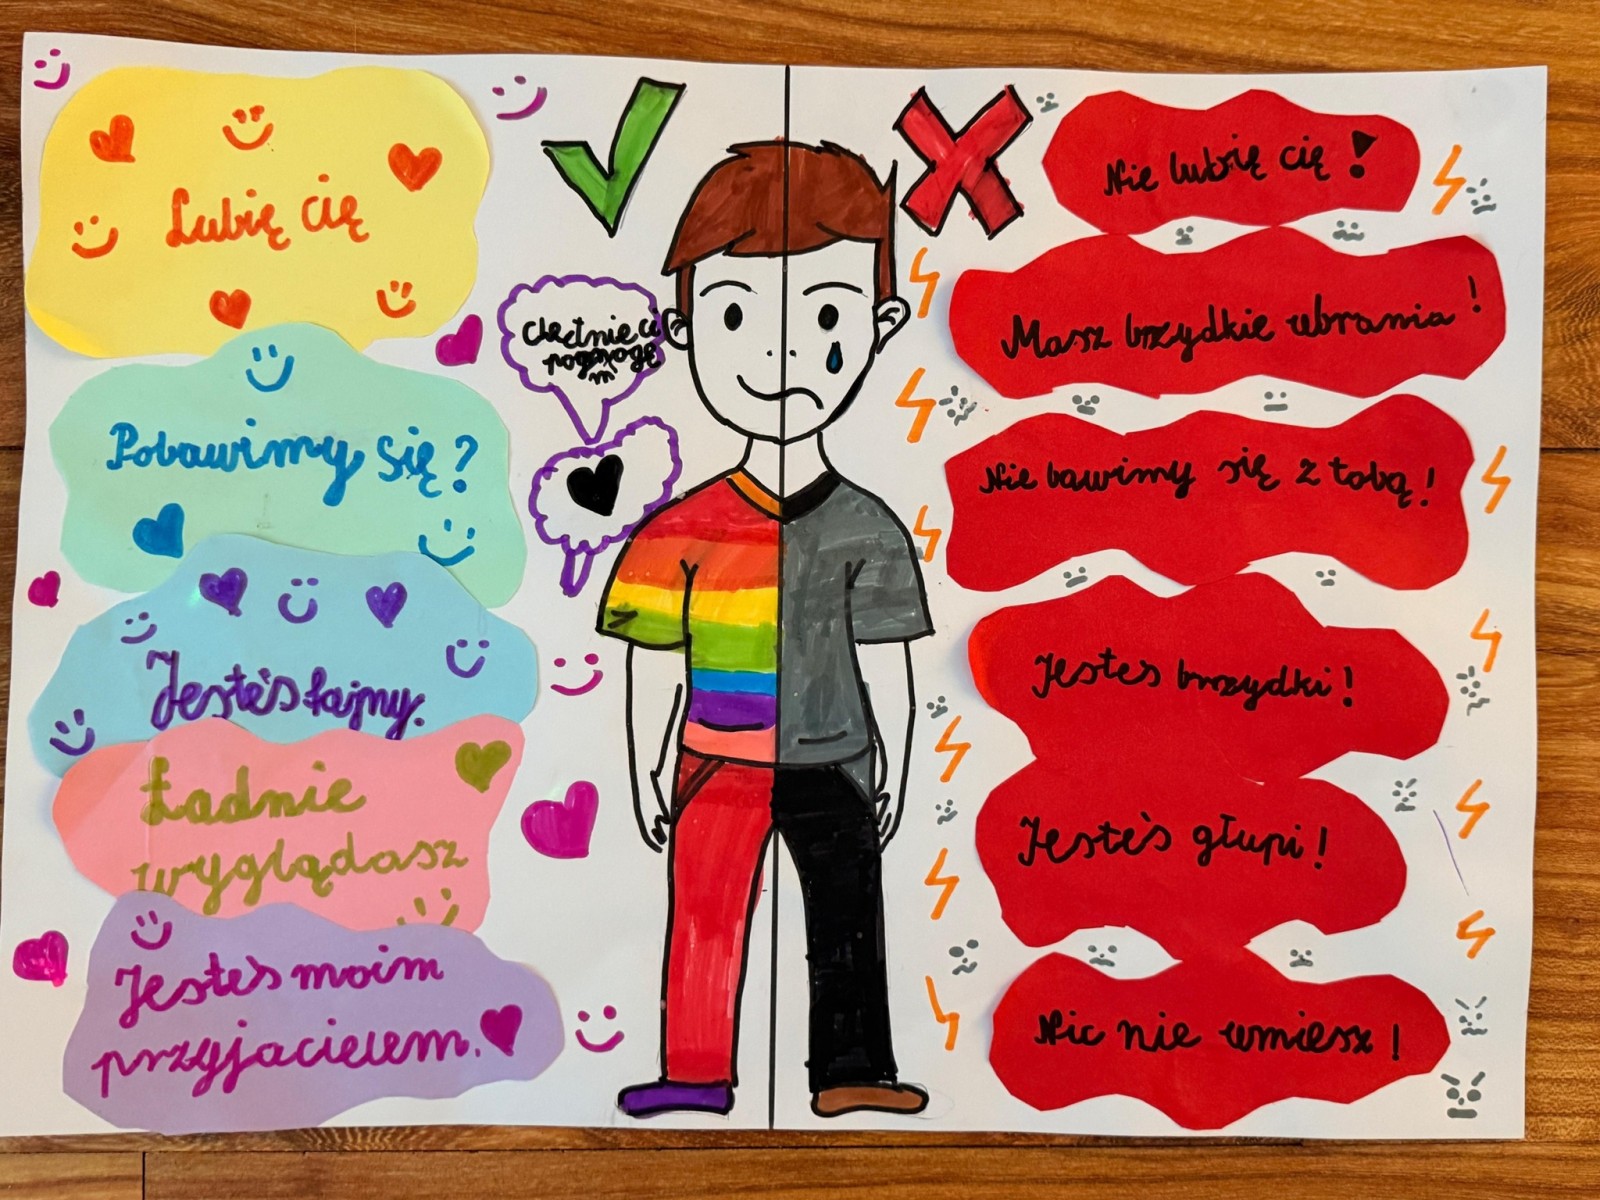 Lubię Cię
Pobawimy się?
Jesteś fajny.
Ładnie
wyglądasz
Jesteś moim
przyjacielem.
Chętnie Ci
pomogę
m
Nie lubię cię!
Masz brzydkie ubrania!
Nie bawimy się z tobą!
Jesteś brzydki!
Jesteś głupi!
Nic nie umiesz!